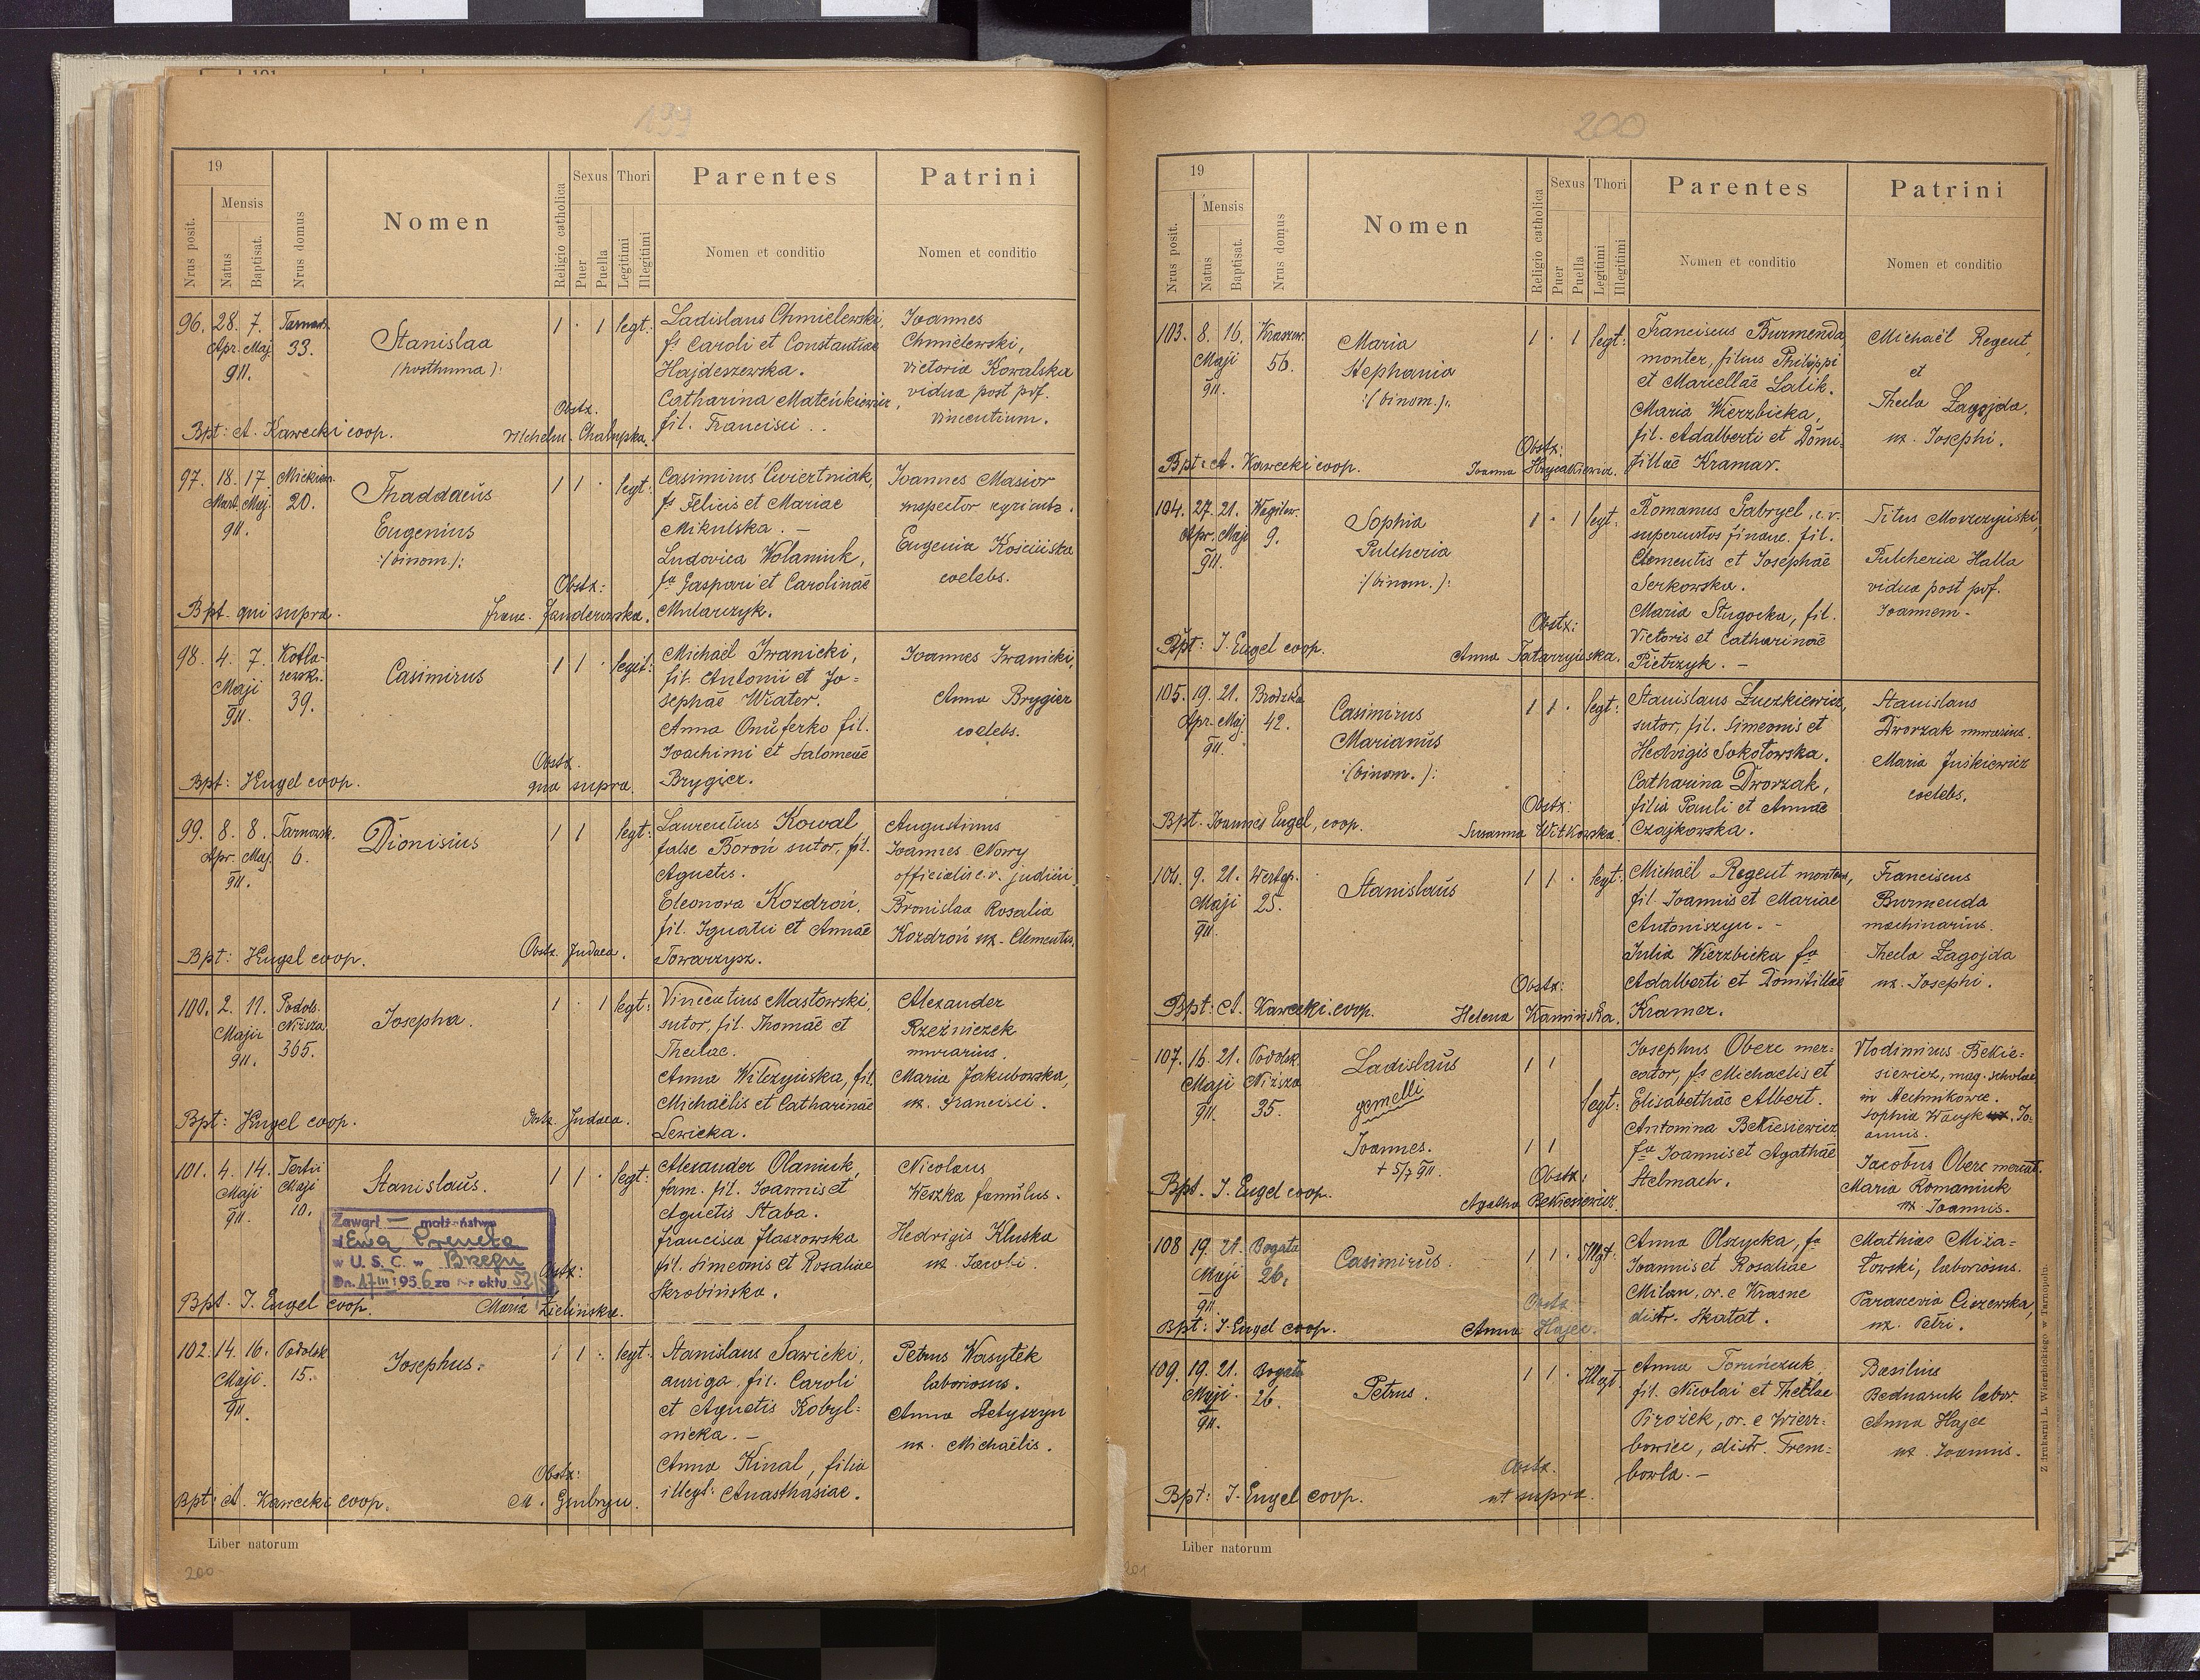 199
19
Mensis
Nrus posit.
Natus
Baptisat.
Nrus domus
Nomen
Religio catholica
Sexus
Puer
Puella
Thori
Legitimi
Illegitimi
Parentes
Nomen et conditio
Patrini
Nomen et conditio
96. 28. 7. Tarnow. 1 · 1 legt:
Apr. Maj 33.
911.
Stanislaa
/posthuma/:
Ladislaus Chmielewski,
fs Caroli et Constantiae
Hajdeszewska.
Catharina Mateńkiewicz,
fil. Francisci ..
Joannes
Chmielewski,
Victoria Kowalska
vidua post pdf.
Vincentium.
Obstx.
Bpt: A. Kawecki coop.
Chałupska.
97. 18. 17. 1 1 · legt:
Mart. Maj. 20.
911.
Thaddaeus
Eugenius
:/binom/:
Casimirus Cwiertniak,
fs Felicis et Mariae
Mikulska. -
Ludovica Wolaniuk,
fa Gaspari et Carolinae
Mularczyk.
Joannes Masior
inspector
Eugenia
coelebs.
Obstx:
Bpt. qui supra.
Franc. Janderowska.
98. 4. 7. 1 1 · legit:
Maji 39.
911.
Casimirus
Michaël Iwanicki,
fil. Antonii et Jo=
sephae Wiater.
Anna Onuferko fil.
Joachimi et Salomeae
Brygier.
Joannes Iwanicki,
Anna Brygier
coelebs.
Obstx.
Bpt: Engel coop. qua supra.
99. 8. 8. Tarnowsk. 1 1 legt:
Apr. Maj. 6.
911.
Dionisius
Laurentius Kowal
false Boroń sutor, fil.
Agnetis.
Eleonora Kozdroń,
fil. Ignatii et Annae
Towarzysz.
Augustinus
Joannes Nowy
officialis c.r. judicii
Bronislaa Rosalia
Kozdroń ux. Clementis.
Bpt: Engel coop. Obstx. Judaea.
100. 2. 11. Podols. 1 · 1 legt:
Maji Niższa
911. 365.
Josepha.
Vincentius Masłowski,
sutor, fil. Thomae et
Theclae.
Anna Wilczyńska, fil.
Michaëlis et Catharinae
Lewicka.
Alexander
Rzeźniczek
murarius.
Maria Jakubowska,
ux. Francisci.
Bpt: Engel coop. Obstx. Judaea.
101. 4. 14. Tertii 1 1 · legt:
Maji Maji
911. 10.
Stanislaus.
Alexander Olaniuk,
fam. fil. Joannis et
Agnetis Staba.
Francisca Flaszowska
fil. Simeonis et Rosaliae
Skrobińska.
Nicolaus
Weszka famulus.
Hedvigis Kluska
ux. Jacobi.
Zawarł — małżeństwo
z Ewą
w U. S. C. w Brzegu
Dn. 17 III 1956 za Nr aktu 52/
Obstx:
Bpt. J. Engel coop. Maria Zielińska.
102. 14. 16. Podolsk 1 1 · legt:
Maji. 15.
911.
Josephus.
Stanislaus Sawicki,
auriga, fil. Caroli
et Agnetis Kobyl=
nicka. -
Anna Kinal, filia
illegt: Anasthasiae.
Petrus Wasyłek
laboriosus.
Anna Hetyszyn
ux. Michaëlis.
Obstx:
Bpt: A. Kawecki coop. M. Grubryn.
Liber natorum
200
200
19
Mensis
Nrus posit.
Natus
Baptisat.
Nrus domus
Nomen
Religio catholica
Sexus
Puer
Puella
Thori
Legitimi
Illegitimi
Parentes
Nomen et conditio
Patrini
Nomen et conditio
103. 8. 16. Kraszew. 1 · 1 legt:
Maji 56.
911.
Maria
Stephania
:/binom./:
Franciscus Burmenda,
monter, filius Philippi
et Mariellae Lalik.
Maria Wierzbicka,
fil. Adalberti et Domi=
tillae Kramar.
Michaël Regent,
et
Thecla Łagojda,
ux. Josephi.
Obstx:
Bpt: A. Kawecki coop. Joanna Hrycakiewicz.
104. 27. 21. 1 · 1 legt:
Apr. Maji 9.
911.
Sophia
Pulcheria
:/binom./:
Romanus Gabryel, c.r.
supercustos financ. fil.
Clementis et Josephae
Serkowska.
Maria Sługocka, fil.
Victoris et Catharinae
Pietrzyk. -
Titus Morzczyński,
Pulcheria Halla
vidua post pdf.
Joannem.
Obstx:
Bpt: J. Engel coop. Anna Tatarzyńska.
105. 19. 21. Brodzka 1 1 · legt:
Apr. Maj. 42.
911.
Casimirus
Marianus
:/binom./:
Stanislaus Łuczkiewicz,
sutor, fil. Simeonis et
Hedvigis Sokołowska.
Catharina Dworzak,
filia Pauli et Annae
Czajkowska.
Stanislaus
Dworzak murarius.
Maria Juśkiewicz
coelebs.
Obstx:
Bpt. Joannes Engel, coop. Susanna Witkowska
106. 9. 21. Wertep. 1 1 · legt:
Maji 25.
911.
Stanislaus
Michaël Regent monter,
fil. Joannis et Mariae
Antoniszyn. -
Julia Wierzbicka fa
Adalberti et Domitillae
Kramer.
Franciscus
Burmenda
machinarius.
Thecla Łagojda
ux. Josephi.
Obstx:
Bpt: A. Kawecki coop. Helena Kamińska.
107. 16. 21. Podolsk. 1 1
Maji Niższa
911. 35.
Ladislaus
gemelli
Joannes. 1 1
+ 5/7 911.
legt:
Josephus Oberc mer=
cator, fs Michaelis et
Elisabethae Albert.
Antonina Bekiesiewicz
fa Joannis et Agathae
Stelmach.
Vlodimirus Bekie=
siewicz, mag. scholae
in
Sophia ux. Jo=
annis.
Jacobus Oberc mercat.
Maria Romaniuk
ux. Joannis.
Obstx:
Bpt. J. Engel coop. Agatha Bekiesiewicz.
108 19. 21. Bogata 1 1 · Illgt:
Maji 26.
911
Casimirus.
Anna Olszycka, fa
Joannis et Rosaliae
Milan, or. e Krasne
distr. Skałat.
Mathias Miza=
łowski, laboriosus.
Parascevia Ciszewska,
ux. Petri.
Obstx.
Bpt: J. Engel coop. Anna Hajce.
109. 19. 21. Bogata 1 1 · Illegt.
Maji 26.
911.
Petrus.
Anna Toruńczuk
fil. Nicolai et Theclae
Pirożek, or. e Wierz=
bowiec, distr. Trem=
bowla. -
Basilius
Bednaruk labor.
Anna Hajce
ux. Joannis.
Obstx.
Bpt: J. Engel coop. ut supra.
Liber natorum
201
Z drukarni L. Wierzbickiego w Tarnopolu.